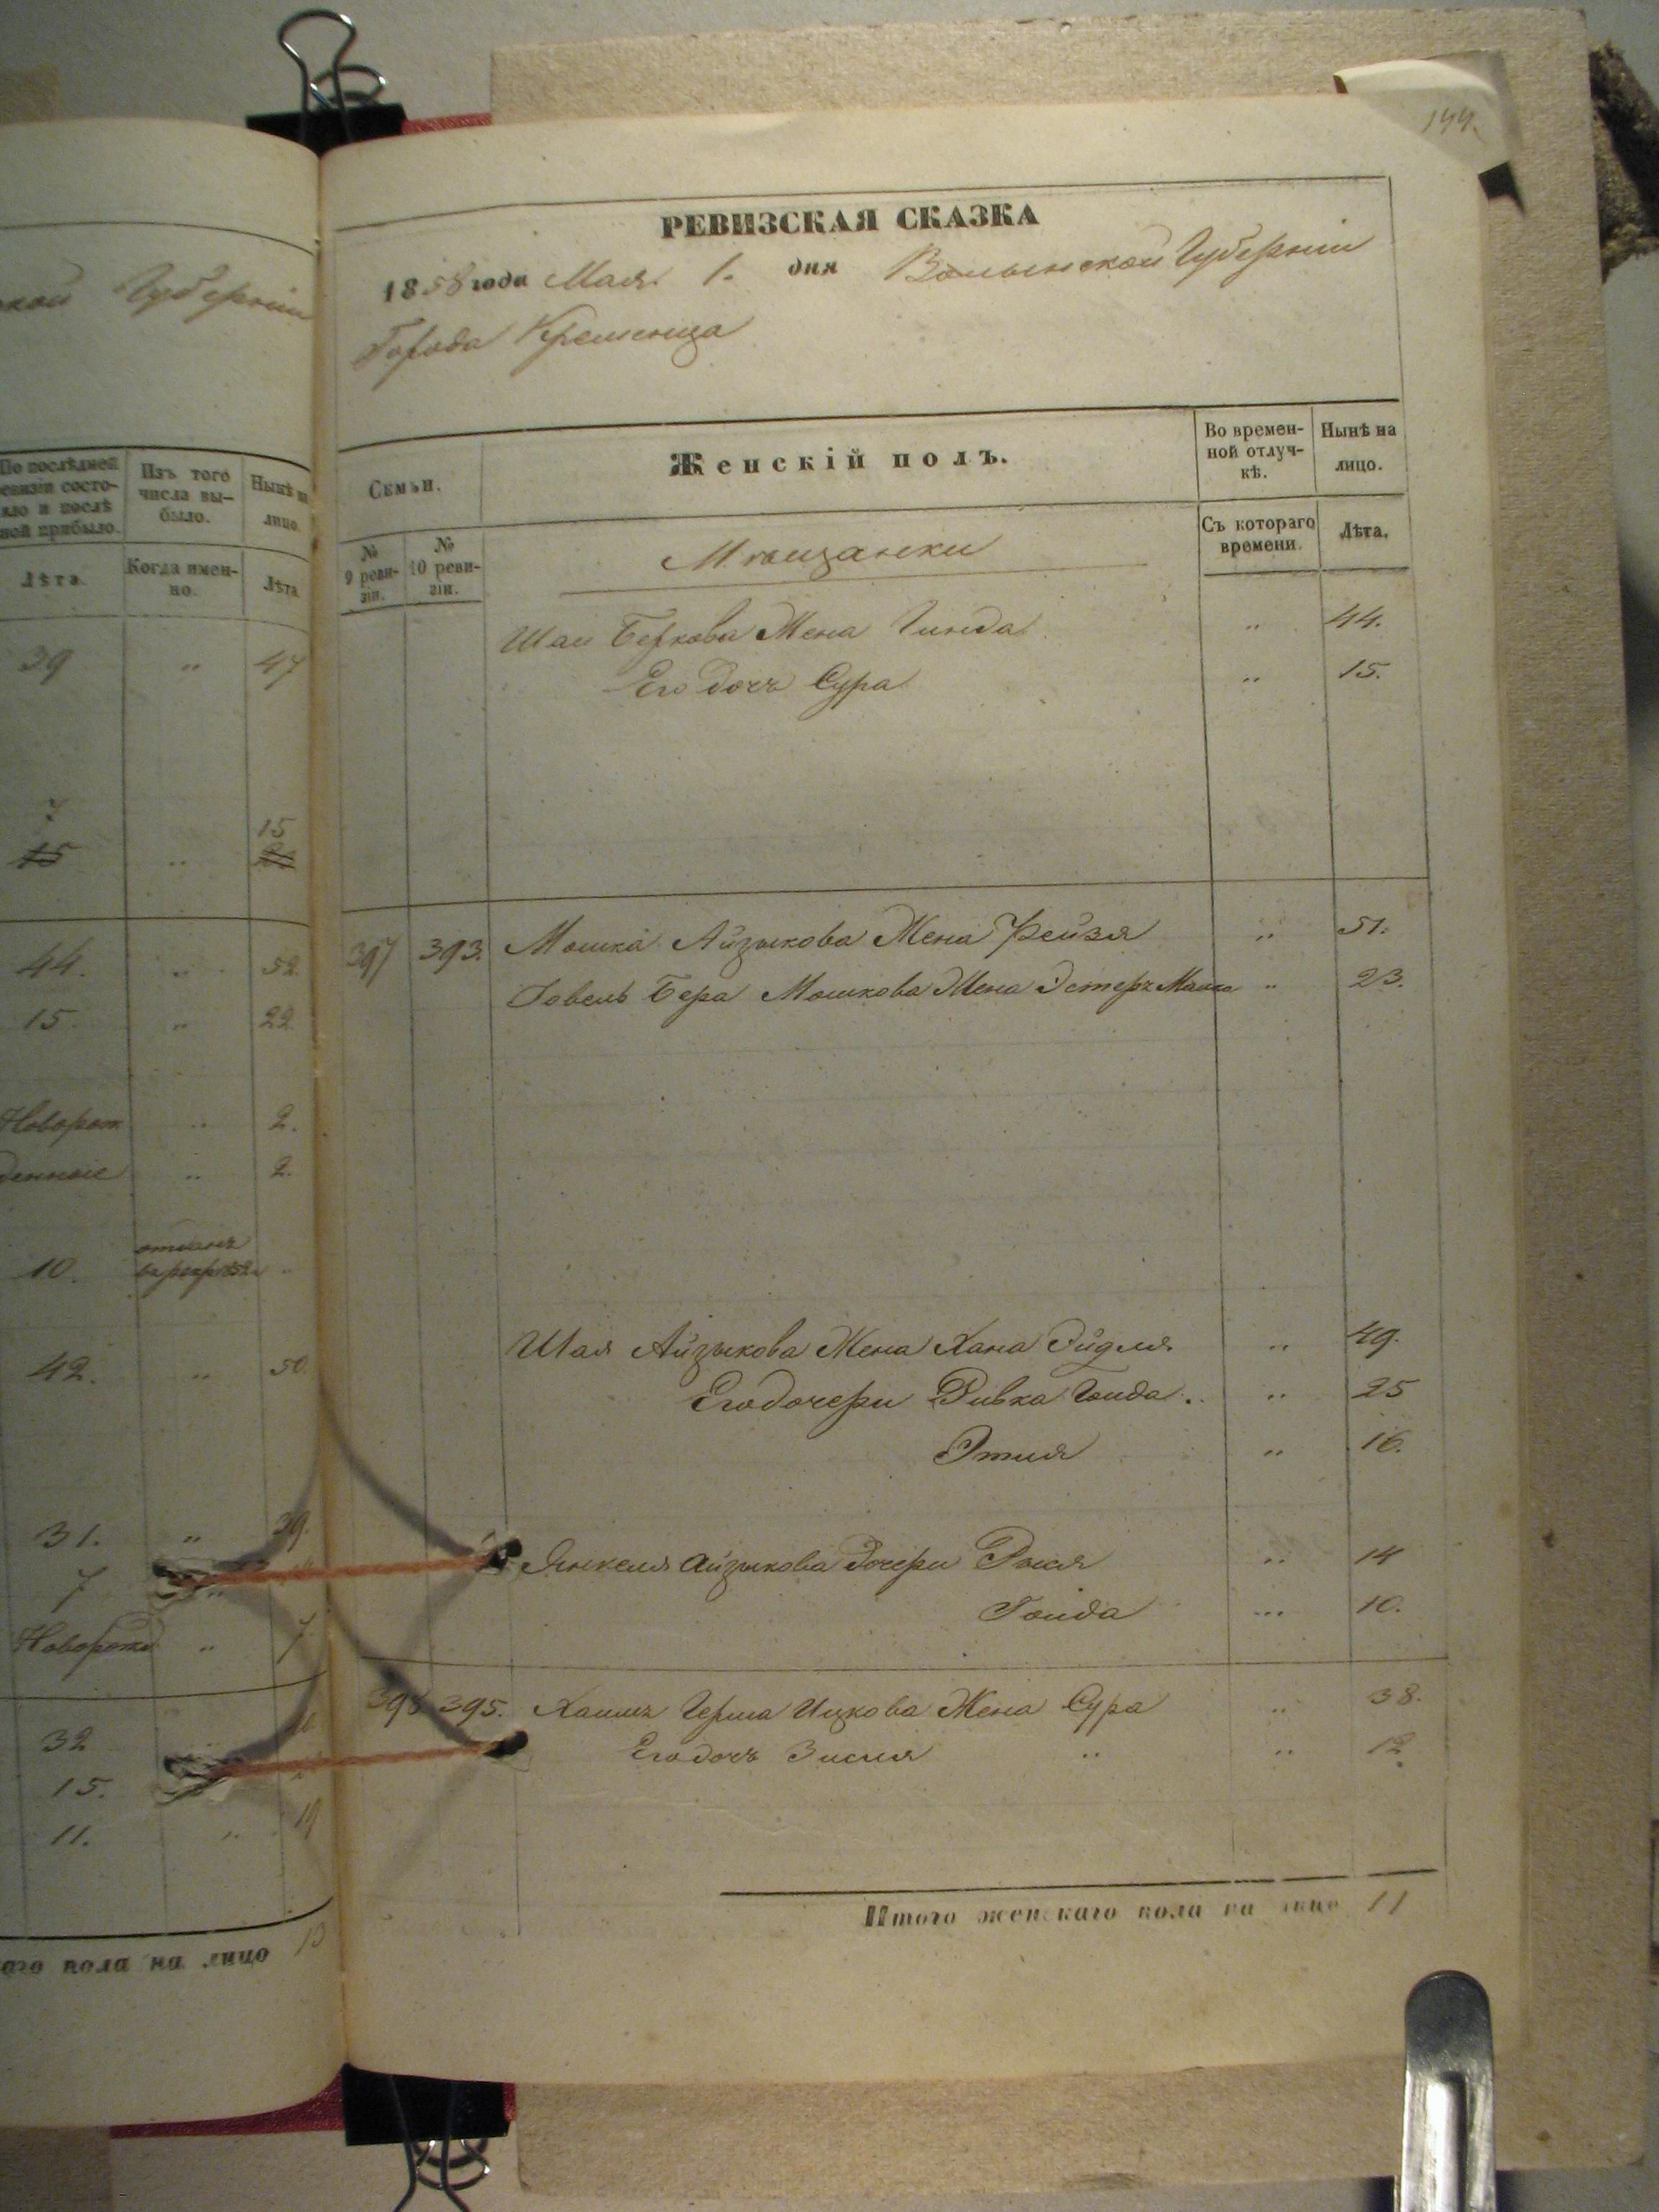 кой Губерніи
По послѣдней
ревизіи состо-
яло и послѣ
ной прибыло.
Изъ того
числа вы-
было.
Нынѣ на
лицо.
Лѣта.
Когда имен-
но.
Лѣта.
39 " 47
7 15
15 " 
44. " 52.
15. " 22.
Новорож " 2.
денные " 2.
10. "
42. " 50.
31. " 39.
7 "
Новорожд " 7.
32
15.
11. " 19
аго пола на лицо 13
144.
РЕВИЗСКАЯ СКАЗКА
1858 года Мая 1. дня Волынской Губерніи
Города Кременца
Семьи.
Женскій полъ.
Во времен-
ной отлуч-
кѣ.
Нынѣ на
лицо.
№
9 реви-
зіи.
№
10 реви-
зіи.
Мѣщанки
Съ котораго
времени.
Лѣта.
Шаи Беркова Жена Гинда " 44.
Его дочь Сура " 15.
397 393. Мошка Айзыкова Жена Фейзя " 51.
Говель Бера Мошкова Жена Эстеръ Малка " 23.
Шая Айзыкова Жена Хана Эйдля " 49.
Его дочери Ривка Гоида. " 25
Этля " 16.
Янкеля Айзыкова Дочери Рыся " 14
Гоида " 10.
398 395. Хаимъ Герша Ицкова Жена Сура " 38.
Его дочь Зисля " " 12.
Итого женскаго пола на лицо 11